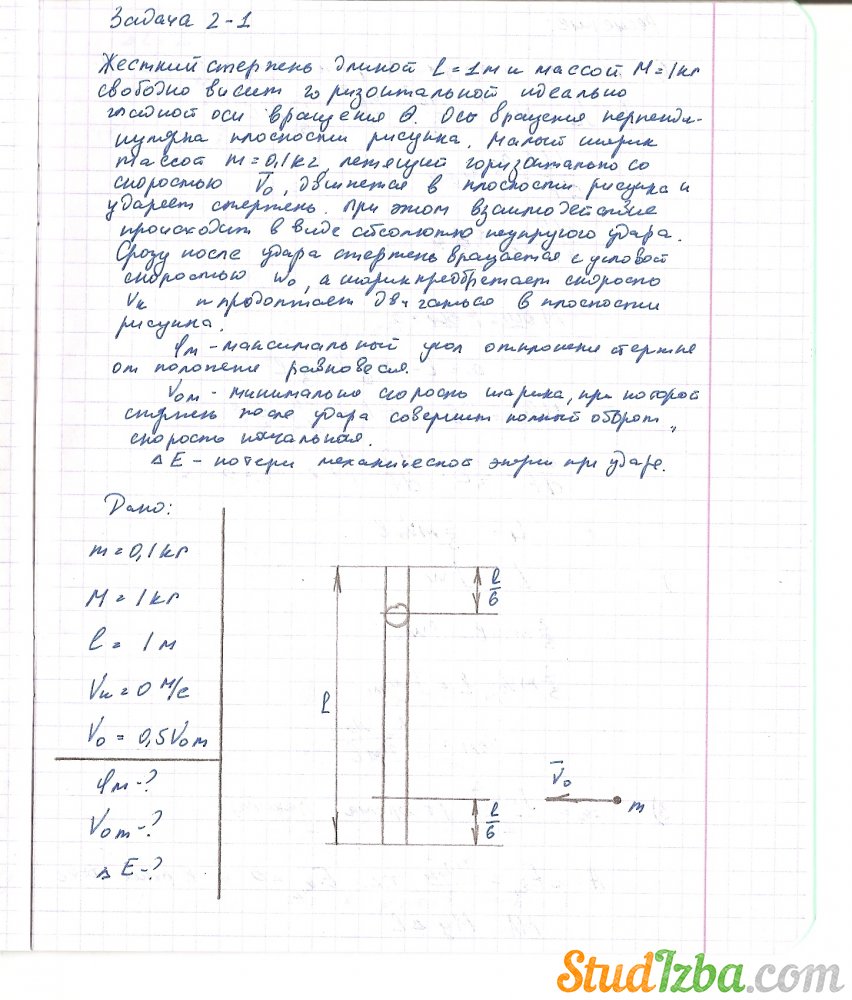 Задача 2-1
Жесткий стержень длиной l = 1 м и массой M = 1 кг
свободно висит горизонтальной идеально
гладкой оси вращения O. Ось вращения перпенди-
кулярна плоскости рисунка. Малый шарик
массой m = 0,1 кг, летящий горизонтально со
скоростью V₀, движется в плоскости рисунка и
ударяет стержень. При этом взаимодействие
происходит в виде абсолютно неупругого удара.
Сразу после удара стержень вращается с угловой
скоростью ω₀, а шарик приобретает скорость
Vк и продолжает двигаться в плоскости
рисунка.
φm - максимальный угол отклонения стержня
от положения равновесия.
V₀m - минимальная скорость шарика, при которой
стержень после удара совершит полный оборот,,
скорость начальная.
ΔE - потери механической энергии при ударе.
Дано:
m = 0,1 кг
M = 1 кг
l = 1 м
Vк = 0 м/с
V₀ = 0,5 V₀m
φm - ?
V₀m - ?
ΔE - ?
l/6
l
V₀
m
l/6
StudIzba.com